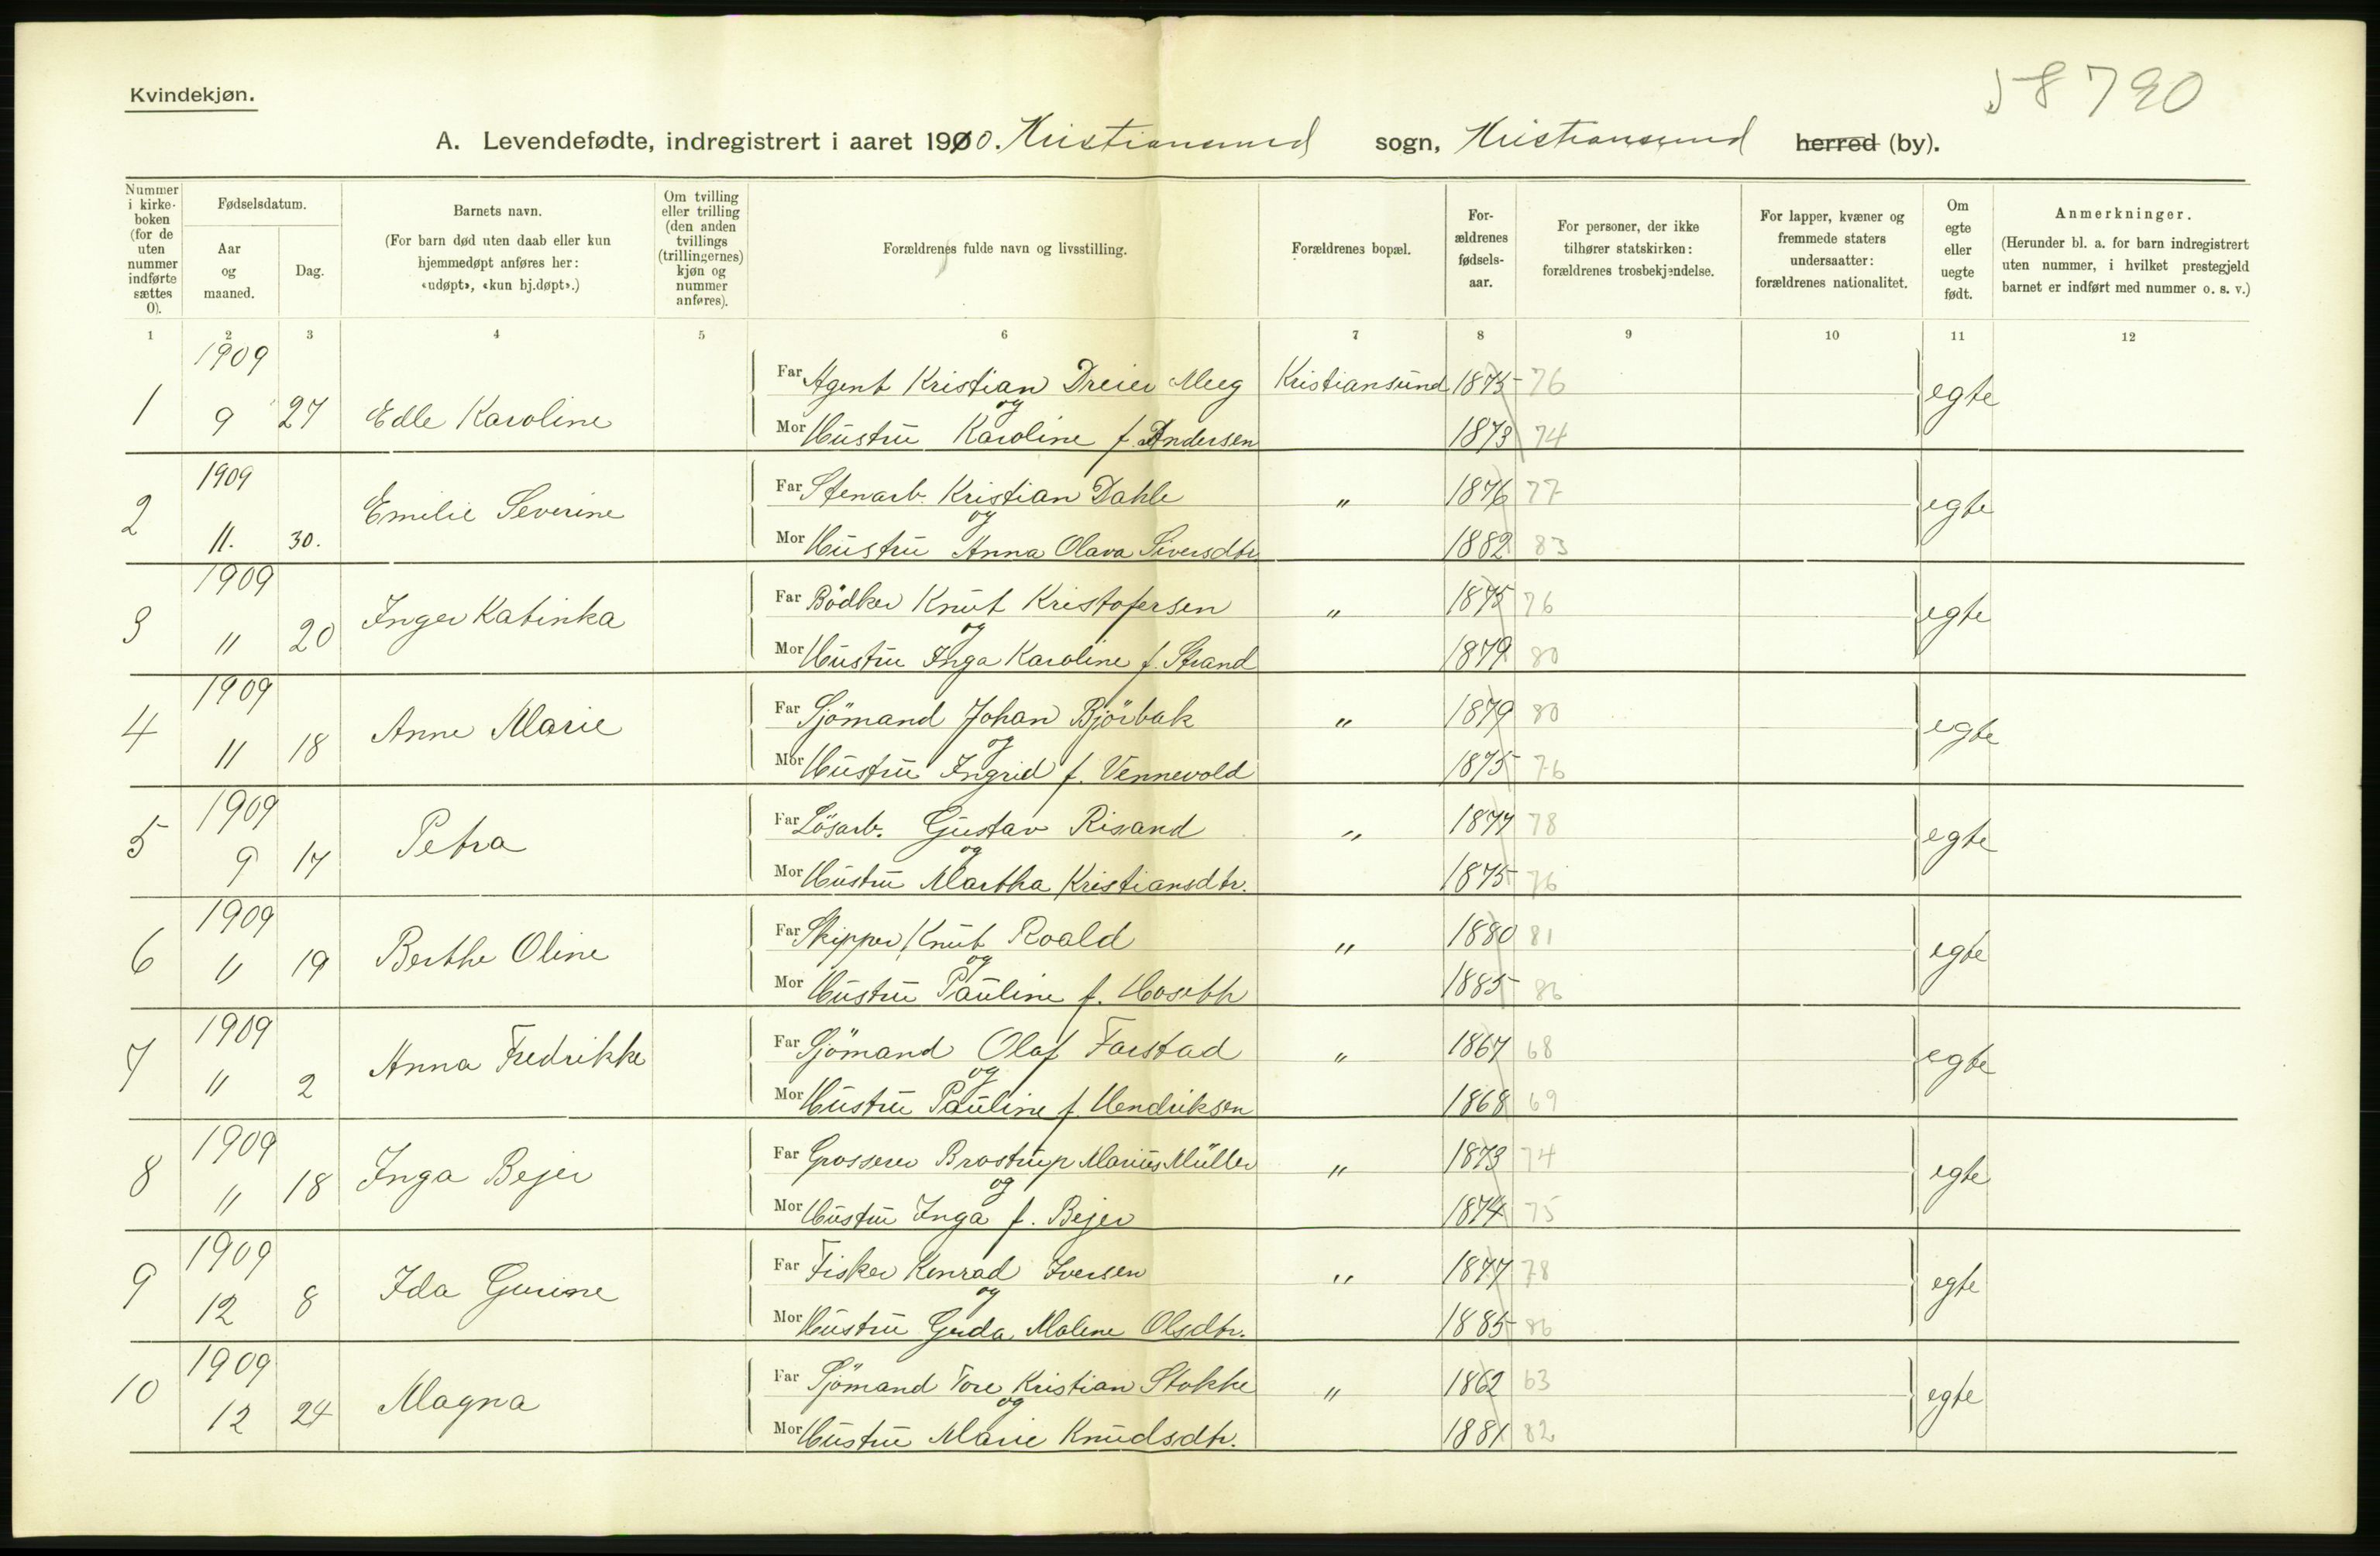 Kvindekjøn.
58 790
A. Levendefødte, indregistrert i aaret 1910. Kristiansund sogn, Kristiansund herred (by).
Nummer i kirkeboken (for de uten nummer indførte sættes 0).
Fødselsdatum.
Aar og maaned.
Dag.
Barnets navn.
(For barn død uten daab eller kun hjemmedøpt anføres her: «udøpt», «kun hj.døpt».)
Om tvilling eller trilling (den anden tvillings (trillingernes) kjøn og nummer anføres).
Forældrenes fulde navn og livsstilling.
Forældrenes bopæl.
Forældrenes fødselsaar.
For personer, der ikke tilhører statskirken: forældrenes trosbekjendelse.
For lapper, kvæner og fremmede staters undersaatter: forældrenes nationalitet.
Om egte eller uegte født.
Anmerkninger.
(Herunder bl. a. for barn indregistrert uten nummer, i hvilket prestegjeld barnet er indført med nummer o. s. v.)
1 2 3 4 5 6 7 8 9 10 11 12
1909
Far Agent Kristian Dreier Meeg Kristiansund 1875 76
1 9 27 Edle Karoline og egte
Mor Hustru Karoline f. Andersen 1873 74
1909
Far Stenarb. Kristian Dahle " 1876 77
2 11. 30. Emilie Severine og egte
Mor Hustru Anna Olava Siversdtr 1882 83
1909
Far Bödker Knut Kristofersen " 1875 76
3 11 20 Inger Katinka og egte
Mor Hustru Inga Karoline f. Strand 1879 80
1909
Far Sjömand Johan Bjørbak " 1879 80
4 11 18 Anne Marie og egte
Mor Hustru Ingrid f. Vennevold 1875 76
1909
Far Lösarb. Gustav Risand " 1877 78
5 9 17 Petra og egte
Mor Hustru Martha Kristiansdtr. 1875 76
1909
Far Skipper Knut Roald " 1880 81
6 11 19 Berthe Oline og egte
Mor Hustru Pauline f. 1885 86
1909
Far Sjömand Olaf Farstad " 1867 68
7 11 2 Anna Fredrikke og egte
Mor Hustru Pauline f. Hendriksen 1868 69
1909
Far Grosserer Brostrup Marius Müller " 1873 74
8 11 18 Inga Bejer og egte
Mor Hustru Inga f. Bejer 1874 75
1909
Far Fisker Konrad Iversen " 1877 78
9 12 8 Ida Gurine og egte
Mor Hustru Gerda Malene Olsdtr. 1885 86
1909
Far Sjömand Tore Kristian Stokke " 1862 63
10 12 24 Magna og egte
Mor Hustru Marie Knudsdtr. 1881 82